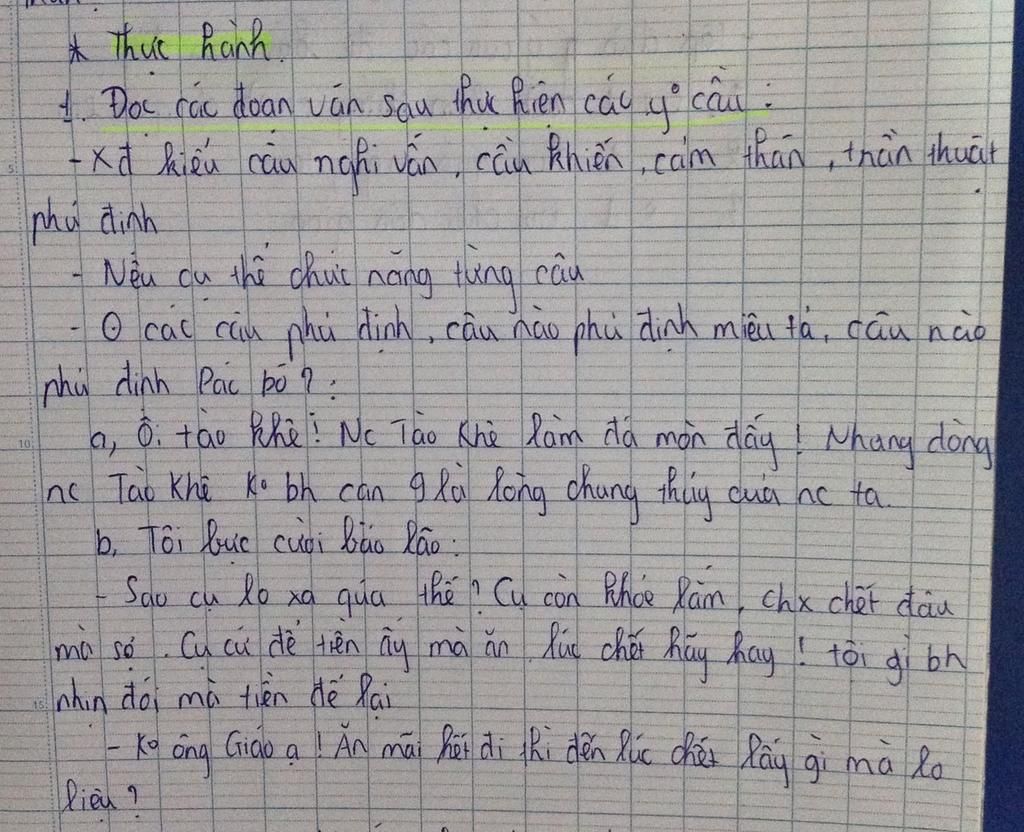 * Thực hành.
1. Đọc các đoạn văn sau thực hiện các yº cầu :
- Xđ kiểu câu nghi vấn, cầu khiến, cảm thán, trần thuật
phủ định
- Nêu cụ thể chức năng từng câu
- Ở các câu phủ định, câu nào phủ định miêu tả, câu nào
phủ định bác bỏ? :
a, Ôi tào khê! Nc Tào Khê làm đá mòn đấy! Nhưng dòng
nc Tào Khê kº bh cạn g là lòng chung thủy của nc ta.
b, Tôi bực cười bảo lão :
- Sao cụ lo xa quá thế? Cụ còn khỏe lắm, chx chết đâu
mà sợ. Cụ cứ để tiền ấy mà ăn lúc chết hãy hay! tội gì bh
nhịn đói mà tiền để lại
- Kº ông Giáo ạ! Ăn mãi hết đi thì đến lúc chết lấy gì mà lo
liệu?